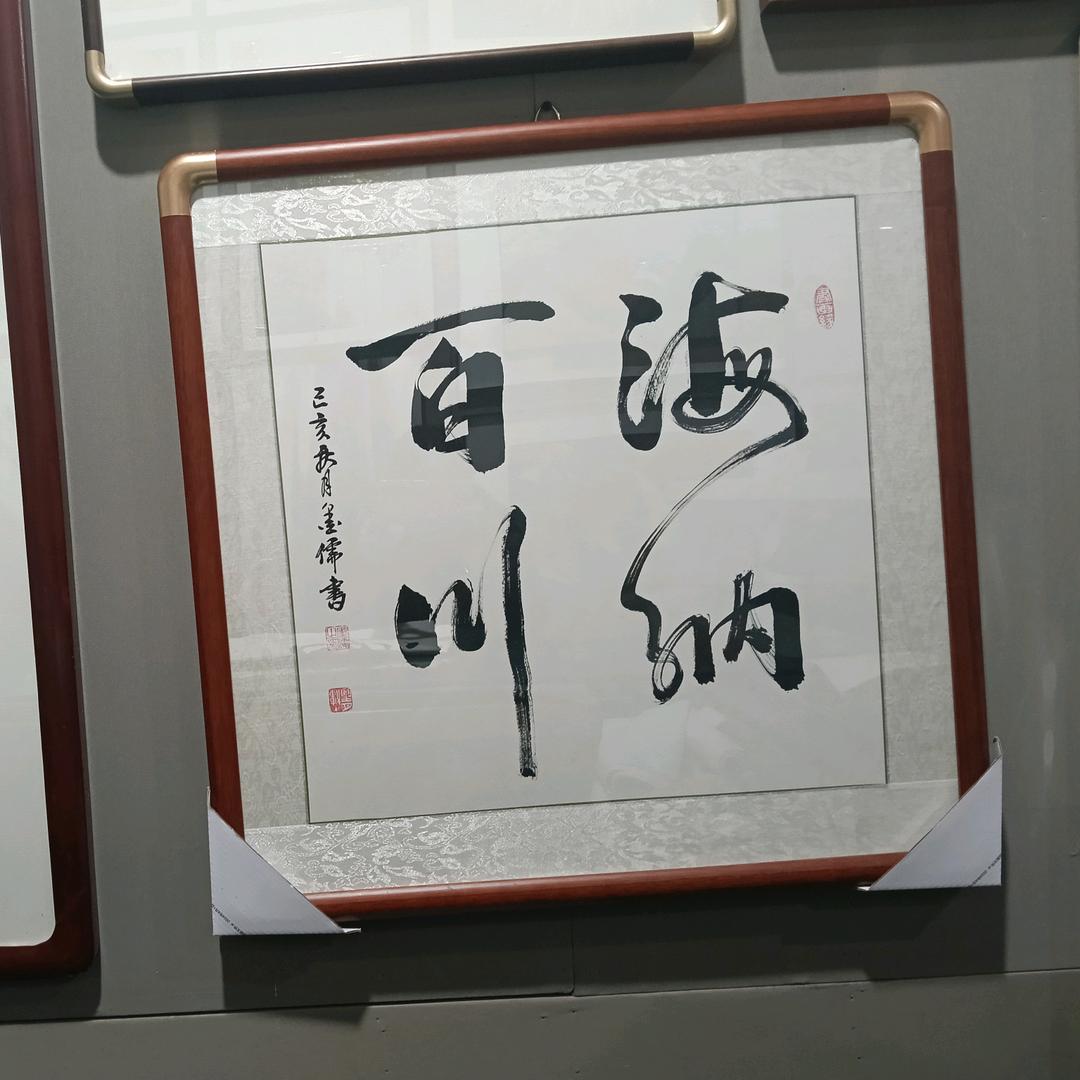 海纳
百川
己亥秋月墨儒書